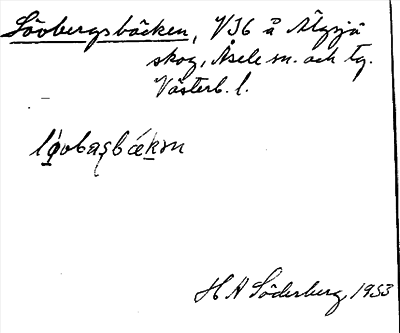 Lövbergsbäcken, VJ6 å Älgsjö
skog, Åsele sn. och tg.
Västerb. l.
H A Söderberg, 1953